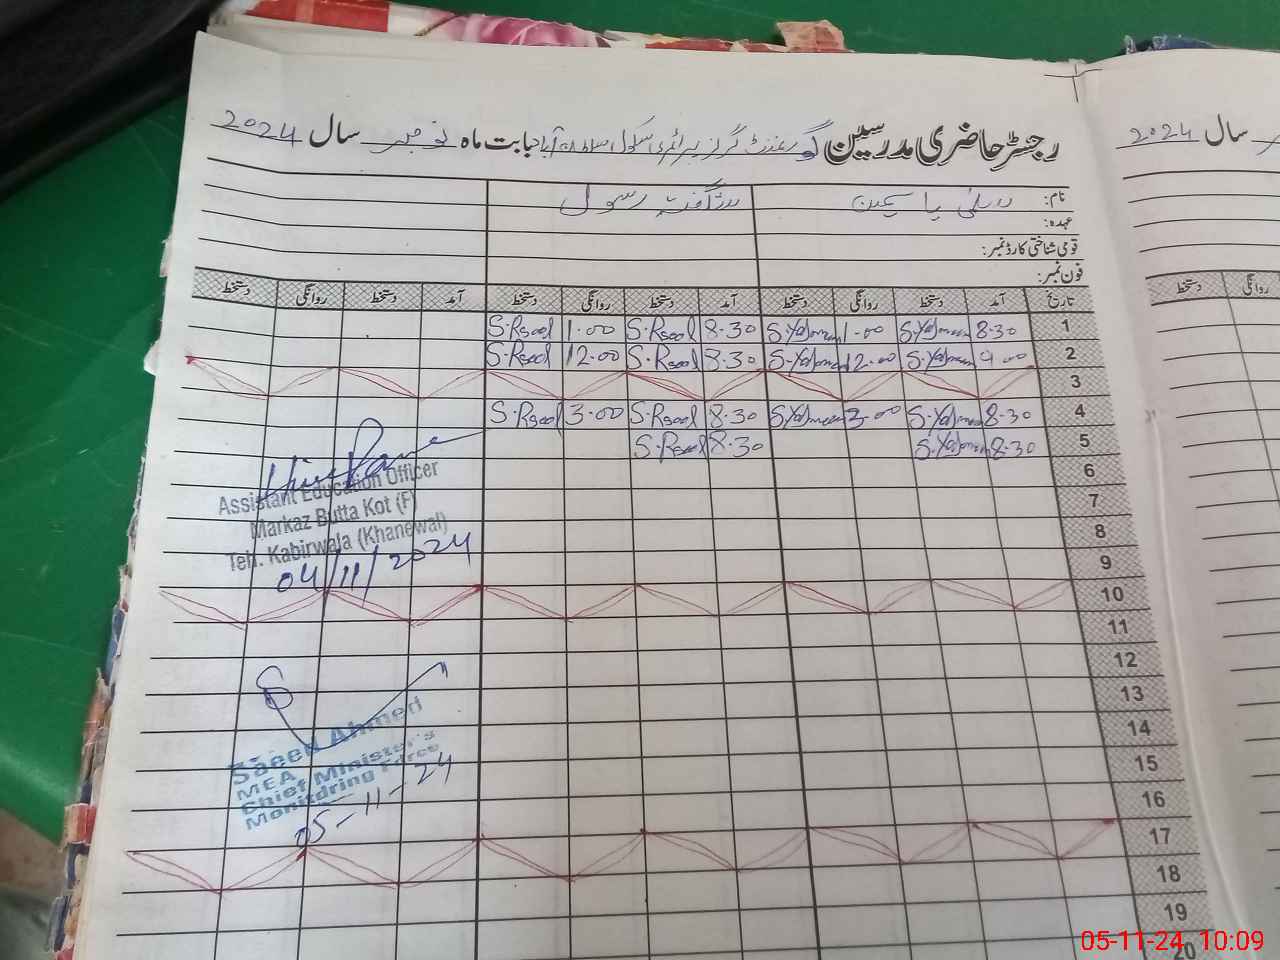 رجسٹر حاضری مدرسین گورنمنٹ گرلز پرائمری سکول سلطان آباد بابت ماہ نومبر سال 2024
سال 2024
نام: یاسمین شگفتہ رسول
عہدہ:
قومی شناختی کارڈ نمبر:
فون نمبر:
تاریخ آمد دستخط روانگی دستخط آمد دستخط روانگی دستخط آمد دستخط روانگی دستخط
روانگی دستخط
S.Rsool 1.00 S.Rsool 8.30 S.Yasmeen 1.00 S.Yasmeen 8.30 1
S.Rsool 12.00 S.Rsool 8.30 S.Yasmeen 12.00 S.Yasmeen 9.00 2
3
S.Rsool 3.00 S.Rsool 8.30 S.Yasmeen 3.00 S.Yasmeen 8.30 4
S.Rsool 8.30 S.Yasmeen 8.30 5
6
7
8
9
10
11
12
13
14
15
16
17
18
19
20
Assistant Education Officer
Markaz Butta Kot (F)
Teh. Kabirwala (Khanewal)
04/11/2024
Saeed Ahmed
MEA
Chief Minister's
Monitoring Force
05-11-24
05-11-24 10:09